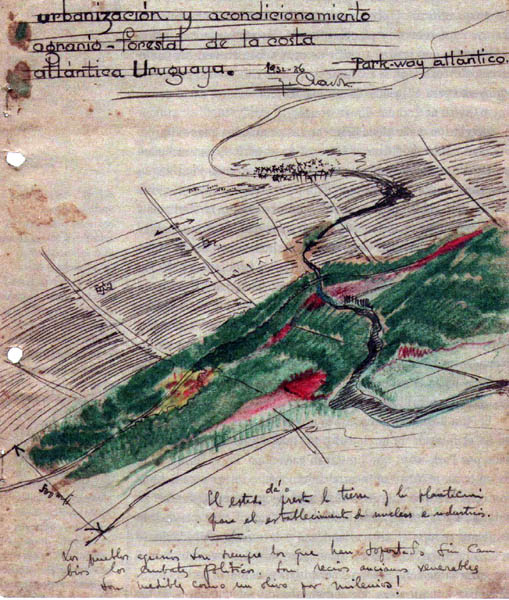 urbanización y acondicionamiento
agrario-forestal de la costa
atlántica Uruguaya. Park-way atlántico.
El estado dá o presta la tierra y la
para el establecimiento de nucleos e industrias.
Los pueblos agrarios son siempre los que han soportado sin cam-
bios los embates Políticos. Son recios ancianos venerables
como un olivo por milenios!